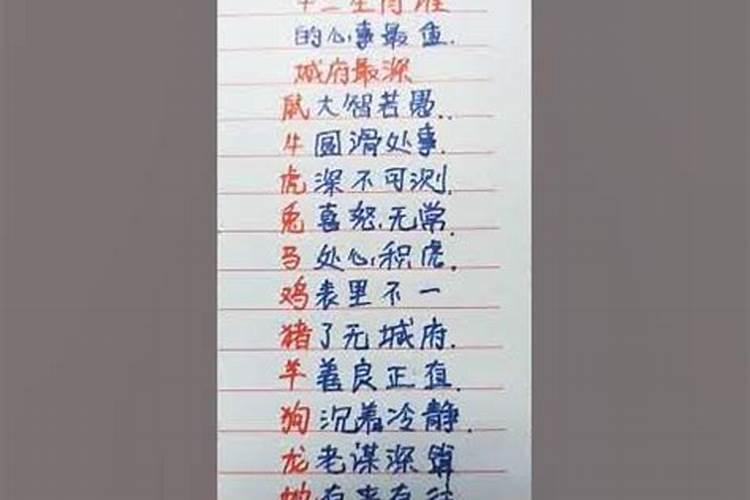 十二生肖谁
的心事最重.
城府最深
鼠大智若愚..
牛圆滑处事.
虎深不可测.
兔喜怒.无常.
马处心,积虑.
鸡表里不一
猪了无城府.
羊善良正直.
狗沉着冷静.
龙老谋深算
蛇有来有往